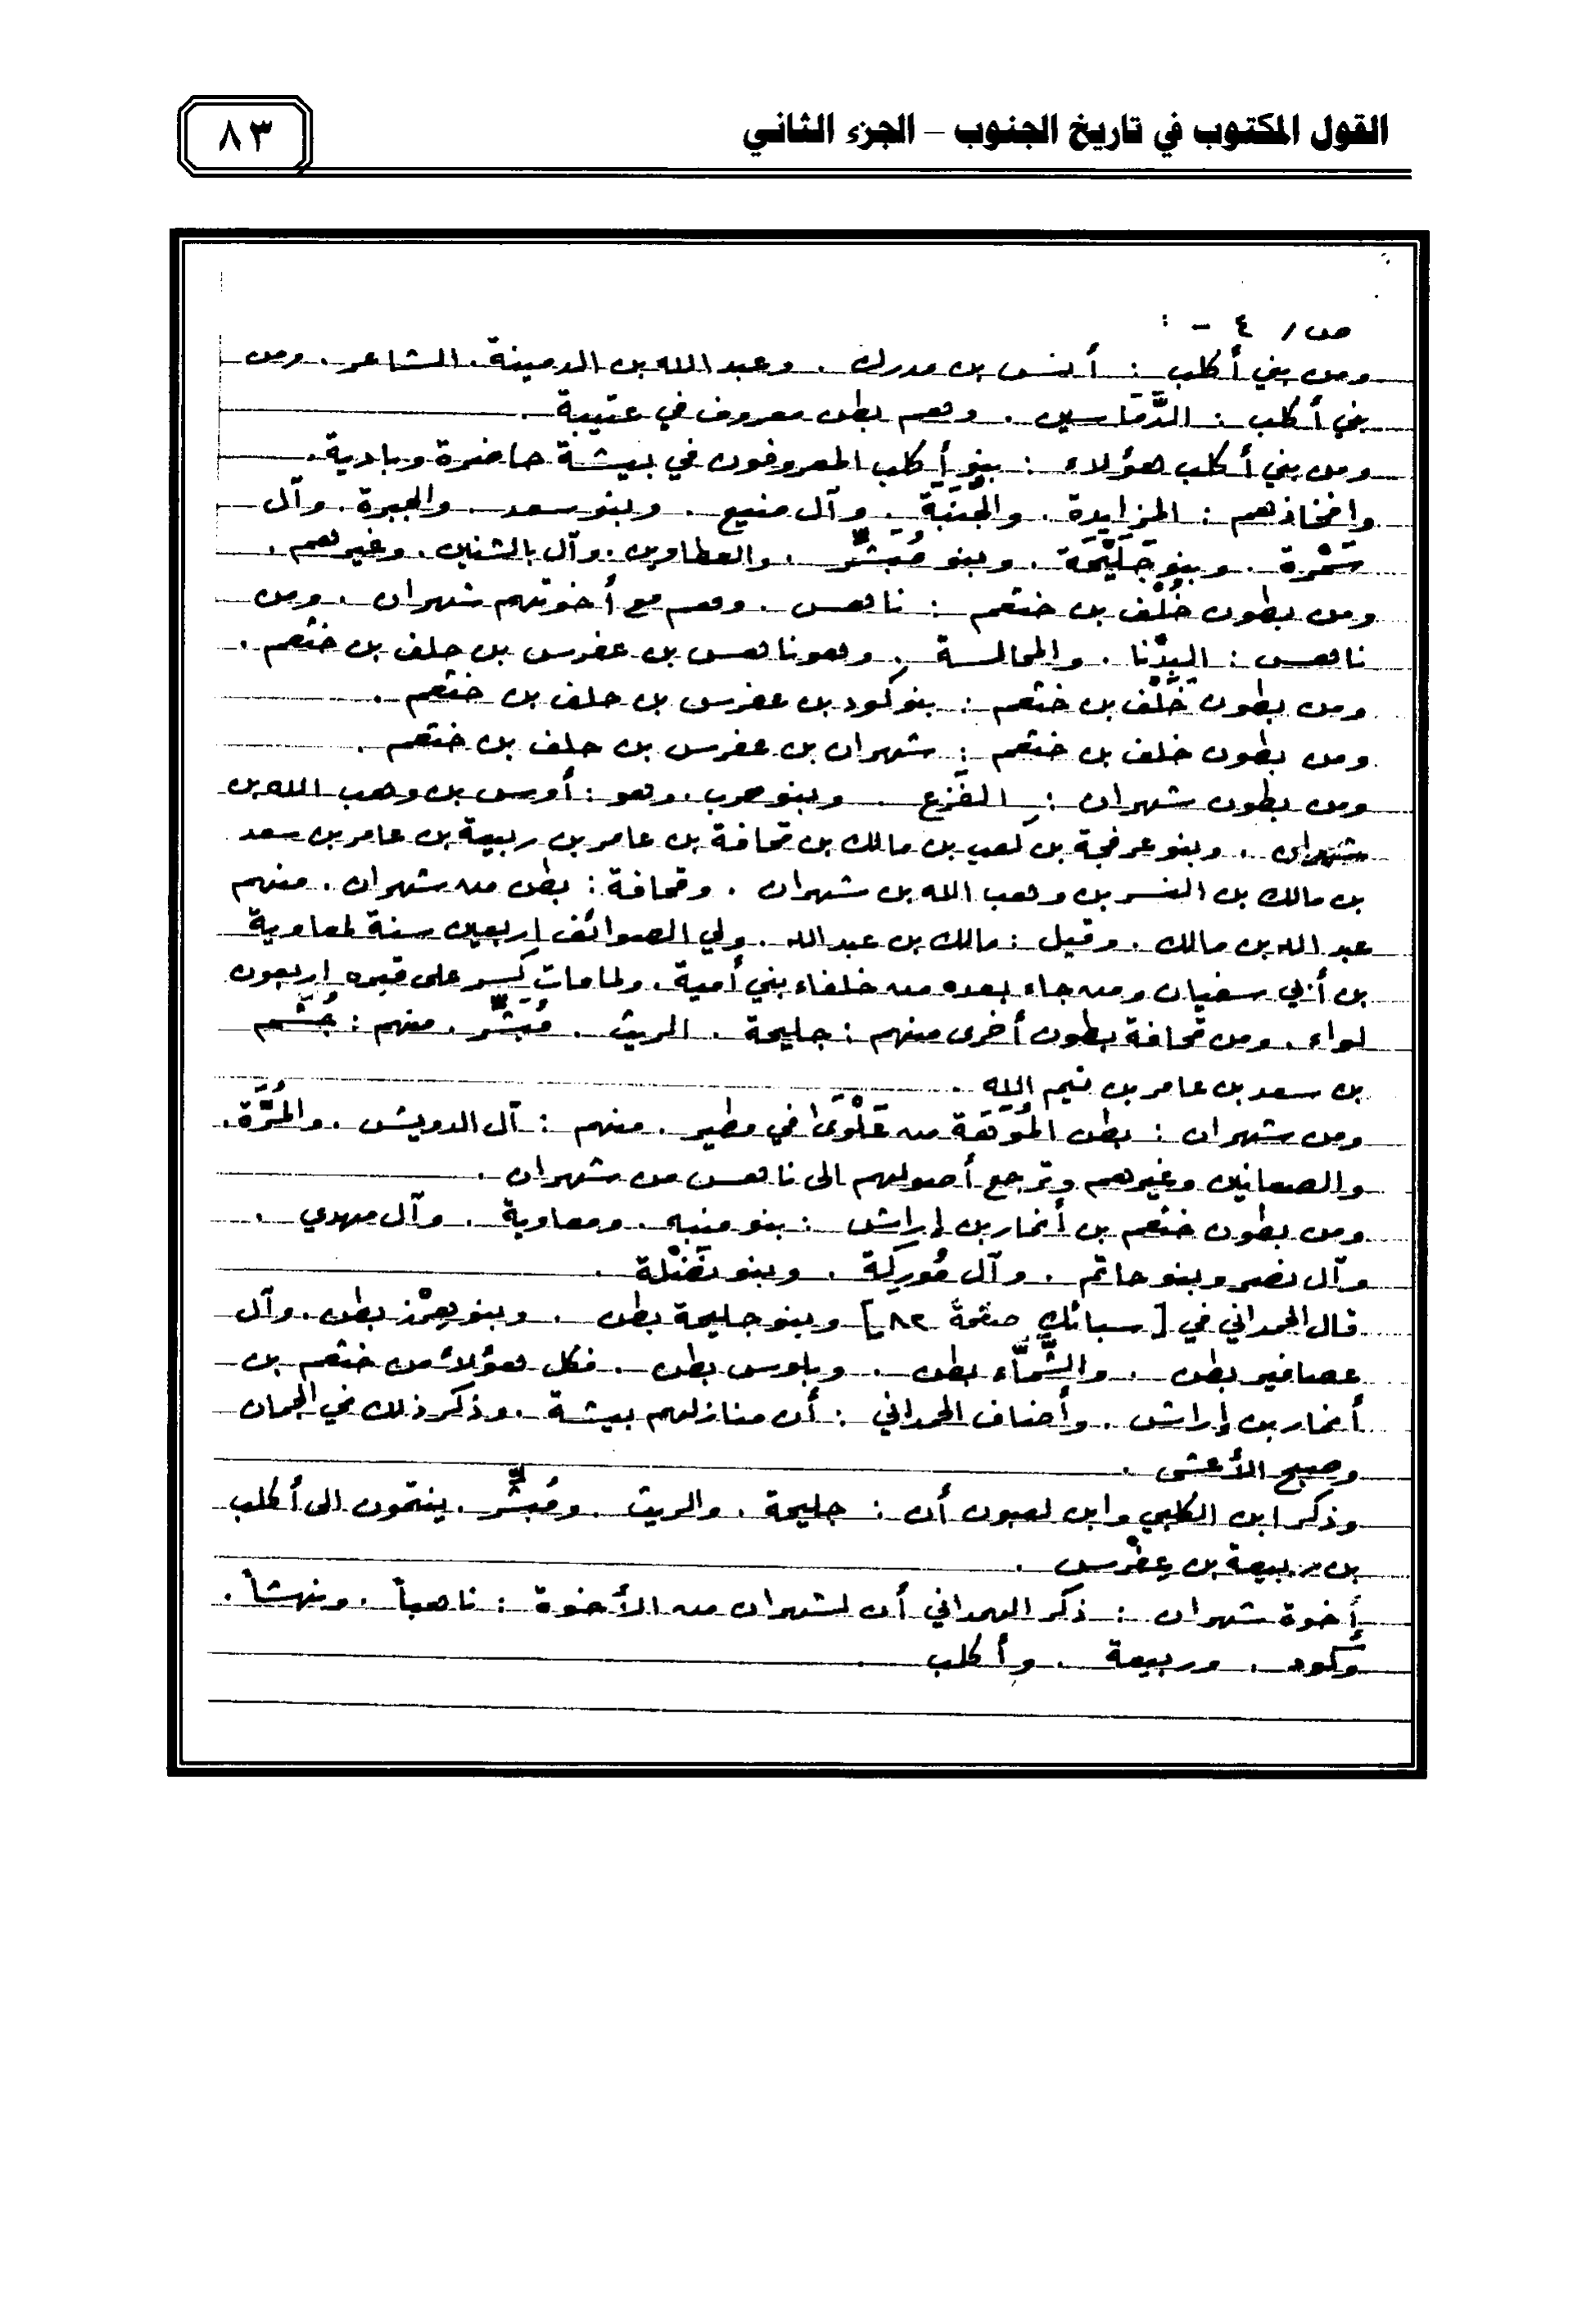 القول المكتوب في تاريخ الجنوب – الجزء الثاني
٨٣
ص / ٤ - :
ومن بني أكلب : أنس بن مدرك . وعبد الله بن الدمينة . الشاعر . ومن
بني أكلب : الدَّمَاسين . وهم بطن معروف في عتيبة .
ومن بني أكلب هؤلاء : بنو أكلب المعروفون في بيشة حاضرة وبادية .
وافخاذهم : المزايدة . والجَنَبَة . وآل منيع . وبنو سعد . والجبرة . وآل
سَمْرة . وبنو جَلَيْحَة . وبنو مُبَشِّر . والعطاوين . وآل بالشنين . وغيرهم .
ومن بطون خُلْف بن خثعم : ناهس . وهم مع أخوتهم شهران . ومن
ناهس : البِدْنا . والمحالسة . وهو ناهس بن عفرس بن حلف بن خثعم .
ومن بطون خَلْف بن خثعم : بنو كود بن عفرس بن حلف بن خثعم .
ومن بطون خلف بن خثعم : شهران بن عفرس بن حلف بن خثعم .
ومن بطون شهران : الفَزَع . وبنو حرب . وهو : أوس بن وهب الله بن
شهران . وبنو عرفجة بن كعب بن مالك بن قحافة بن عامر بن ربيعة بن عامر بن سعد
بن مالك بن النسر بن وهب الله بن شهران . وقحافة : بطن من شهران . منهم
عبد الله بن مالك . وقيل : مالك بن عبد الله . ولي الصوائف اربعين سنة لمعاوية
بن أبي سفيان ومن جاء بعده من خلفاء بني أمية . ولما مات كُسِر على قبره اربعون
لواء . ومن قحافة بطون أخرى منهم : جليحة . الريث . مُبَشِّر . منهم : جُشَم
بن سعد بن عامر بن تيم الله .
ومن شهران : بطن المُوهَة من عَلْوَى في مطير . منهم : آل الدويش . والمُرَّة .
والصعانين وغيرهم وترجع أصولهم الى ناهس من شهران .
ومن بطون خثعم بن أنمار بن إراش : بنو منبه . ومعاوية . وآل مهدي .
وآل نصر وبنو حاتم . وآل مُورِكَة . وبنو نَضْلة .
قال الحمداني في [ سبائك صفحة ٨٢ ] وبنو جليحة بطن . وبنو هِمْز بطن . وآل
عصافير بطن . والشَّمّاء بطن . وبلوس بطن . فكل هؤلاء من خثعم بن
أنمار بن إراش . وأضاف الحمداني : أن منازلهم بيشة . وذكر ذلك في الجمان
وصبح الأعشى .
وذكر ابن الكلبي وابن لعبون أن : جليحة . والريث . ومُبَشِّر . ينتمون الى أكلب
بن ربيعة بن عِفْرس .
أخوة شهران : ذكر الهمداني أن لشهران من الأخوة : ناهباً . ونهشاً .
وكود . وربيعة . وأكلب .